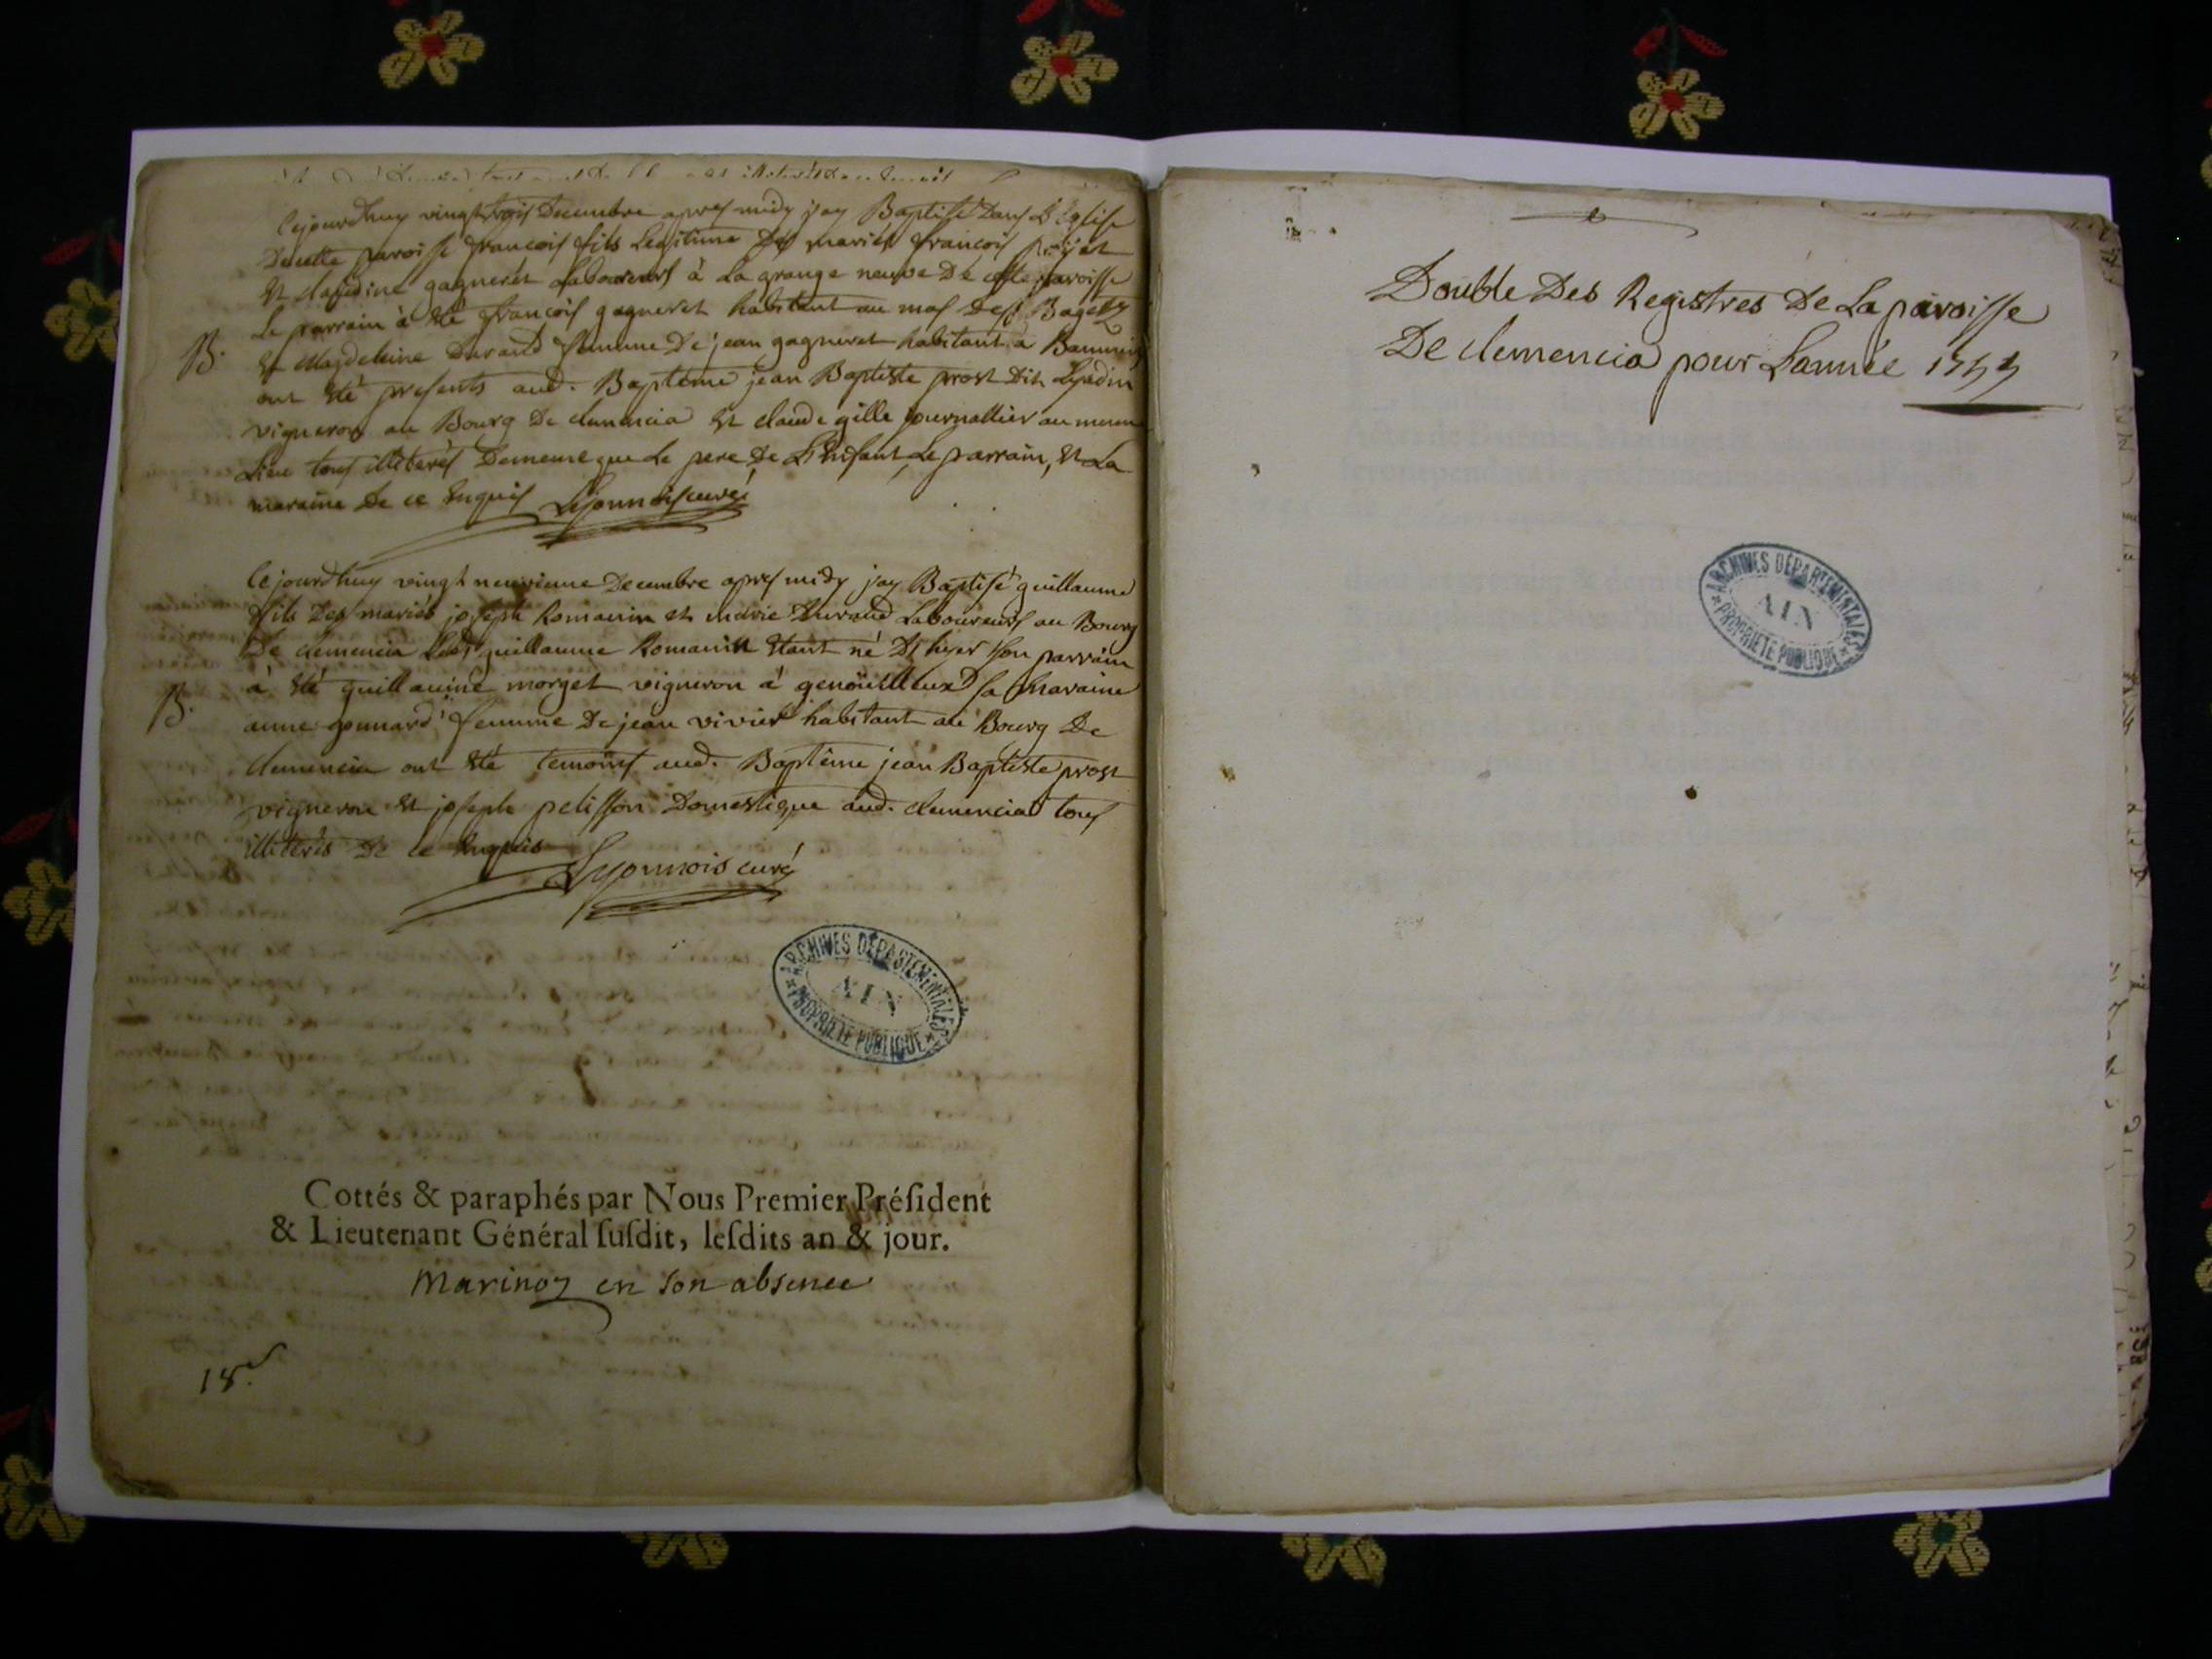 Cejourdhuy vingt trois Decembre apres midy jay Baptisé Dans L'Eglise
De cette paroisse francois fils Legitime Des mariés francois
Et claudine gagneret Laboureurs à La grange neuve De cette paroisse
Le parrain à Eté francois gagneret habitant au mas Des
B. Et Magdeleine Durand femme De jean gagneret habitant à
ont Eté presents aud. Baptême jean Baptiste prost Dit
vigneron au Bourg De clemencia Et claude gille journallier au meme
Lieu tous illiterés Dememe que Le pere De L'Enfant, Le parrain, Et La
maraine De ce Enquis Lyonnois curé
Cejourdhuy vingt neuvieme Decembre apres midy jay Baptisé guillaume
fils Des mariés joseph Romanin et marie Durand Laboureurs au Bourg
De clemencia Led. guillaume Romanin Etant né D'hyer Son parrain
B. à Eté guillaume morget vigneron à genouilleux Sa Maraine
anne gonnard femme De jean vivier habitant au Bourg De
clemencia ont Eté temoins aud. Baptême jean Baptiste prost
vigneron Et joseph pelisson Domestique aud. clemencia tous
illiterés De ce Enquis
Lyonnois curé
ARCHIVES DÉPARTEMENTALES
AIN
PROPRIETE PUBLIQUE
Cottés & paraphés par Nous Premier Préſident
& Lieutenant Général ſuſdit, leſdits an & jour.
Marinoz en son absence
18.e
Double Des Registres De La paroisse
De clemencia pour Lannée
ARCHIVES DÉPARTEMENTALES
AIN
PROPRIETE PUBLIQUE